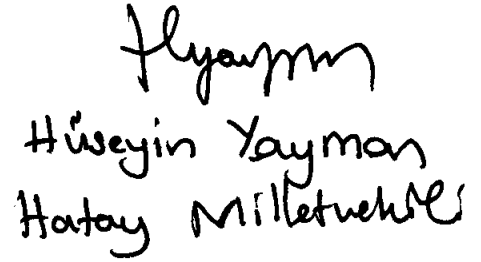 Hyayman
Hüseyin Yayman
Hatay Milletvekili